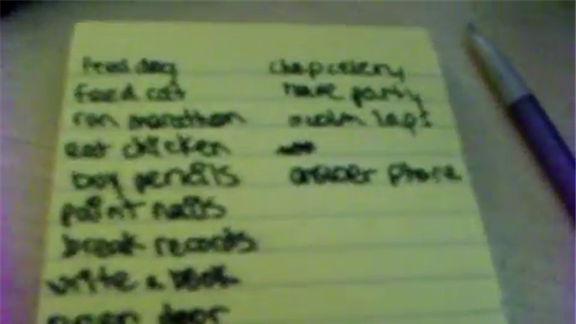 feed dog
feed cat
run marathon
eat chicken
buy pencils
paint nails
break records
write a book
open door
chop celery
have party
swim laps
answer phone